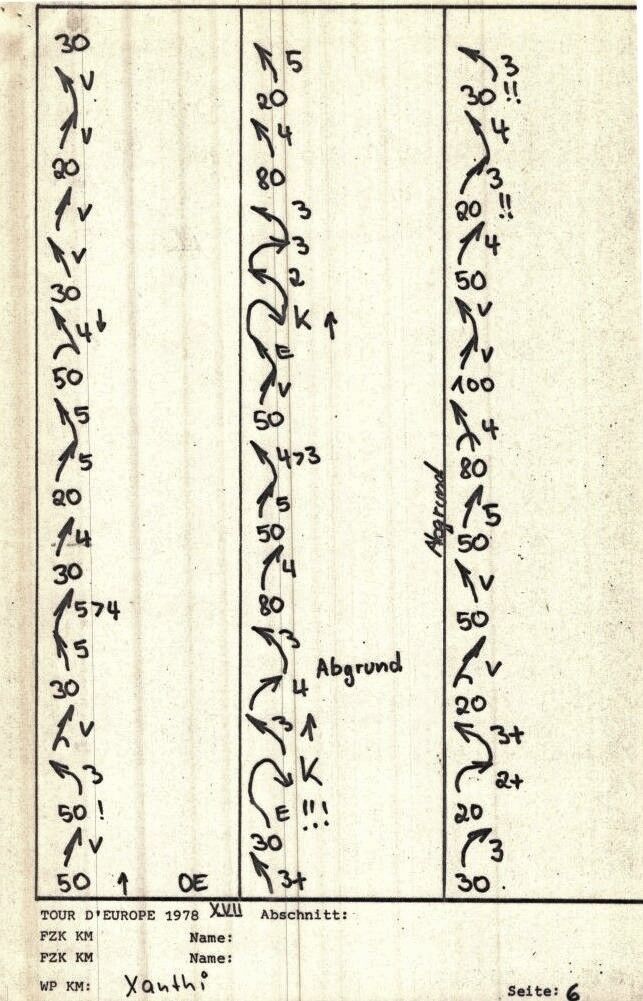 30
V
V
20
V
V
30
4↓
50
5
5
20
4
30
5>4
5
30
V
3
50 !
V
50 ↑ OE
5
20
4
80
3
3
2
K ↑
E
V
50
4>3
5
50
4
80
3
Abgrund
4
3 ↑
K
E !!!
30
3+
3
30 !!
4
3
20 !!
4
50
V
V
100
4
80
Abgrund
5
50
V
50
V
20
3+
2+
20
3
30.
TOUR D'EUROPE 1978 XVII Abschnitt:
FZK KM Name:
FZK KM Name:
WP KM: Xanthi
Seite: 6